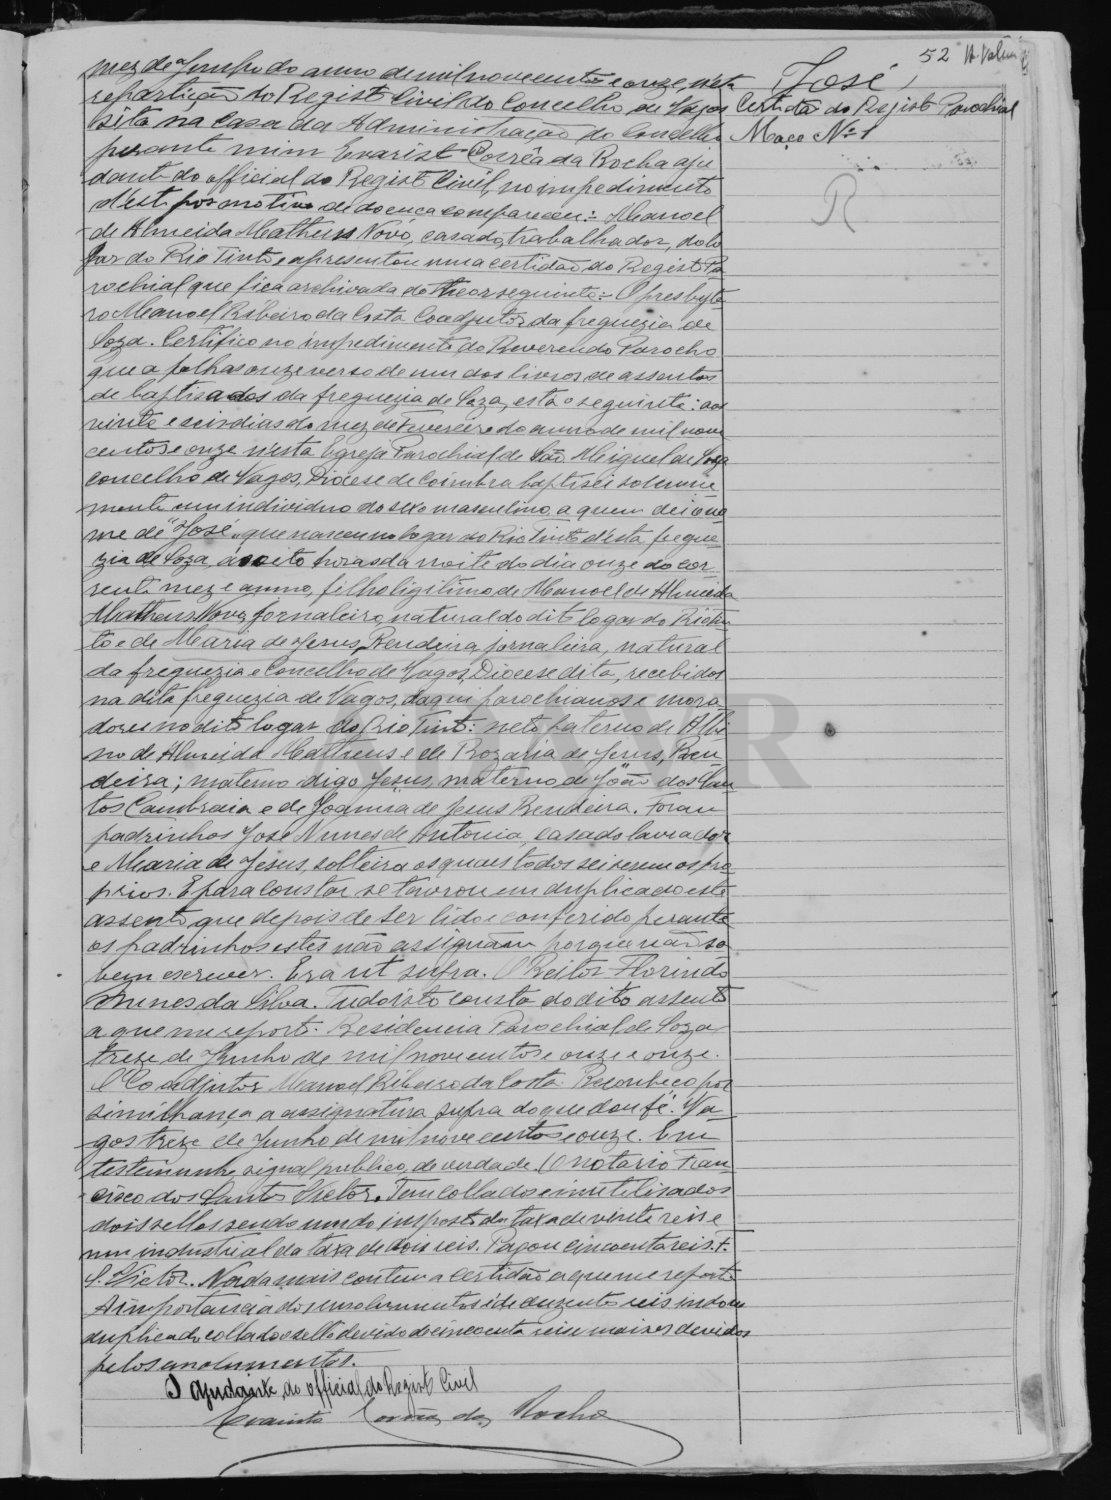 52 
José
Certidão do Regist Parochial
Maço Nº 1
R
mez de Junho do anno de mil novecentos e onze, n'esta
repartição do Regist Civil do Concelho de Vagos
sita na Casa da Administração do Concelho
perante mim Evarist Corrêa da Rocha aju
dant do official do Regist Civil, no impedimento
d'este por motivo de doença compareceu:- Manoel
de Almeida Matheus Novo, casado, trabalhador, do lo
gar do Rio Tinto e apresentou uma certidão do Regist Pa
rochial que fica archivada do theor seguinte:- O presbyte
ro Manoel Ribeiro da Costa Coadjutor da freguezia de
Soza. Certifico no impedimento do Reverendo Parocho
que a folhas onze verso de um dos livros de assentos
de baptisados da freguezia de Soza, está o seguinte: aos
vinte e seis dias do mez de Fevereiro do anno de mil nove
centos e onze n'esta Egreja Parochial de São Miguel de Soza
concelho de Vagos, Diocese de Coimbra baptisei solemne
mente um individuo do sexo masculino a quem dei o no
me de "José" que nasceu no logar do Rio Tinto d'esta fregue
zia de Soza, ás oito horas da noite do dia onze do cor
rente mez e anno, filho ligitimo de Manoel de Almeida
Matheus Novo, jornaleiro, natural do dito logar do Rio Tin
to e de Maria de Jesus, Rendeira, jornaleira, natural
da freguezia e Concelho de Vagos, Diocese dita, recebidos
na dita freguezia de Vagos, d'aqui parochianos e mora
dores no dito logar do Rio Tinto: neto paterno de Albi
no de Almeida Matheus e de Rozaria de Jesus, Ren
deira; materno digo Jesus, materno de João dos San
tos Cambraia e de Joanna de Jesus Rendeira. Foram
padrinhos José Nunes de Antonia, casado lavrador
e Maria de Jesus, solteira os quaes todos sei serem os pro
prios. E para constar se lavrou em duplicado este
assento que depois de ser lido e conferido perante
os padrinhos estes não assignam porque não sa
bem escrever. Era ut supra. O Reitor Florindo
Nunes da Silva. Tudo isto consta do dito assento
a que me reporto. Residencia Parochial de Soza
treze de Junho de mil novecentos e onze e onze.
O Coadjutor Manoel Ribeiro da Costa. Reconheço por
similhança a assignatura supra do que dou fé. Va
gos treze de Junho de mil novecentos e onze. Em
testemunho signal publico, de verdade. O notario Fran
cisco dos Santos Victor. Tem collados e inutilisados
dois sellos sendo um do imposto da taxa de vinte reis e
um industrial da taxa de dois reis. Pagou cincoenta reis. F.
S. Victor. Nada mais contem a certidão a que me reporto
A importancia dos emolumentos é de duzentos reis indo no
duplicado collado o sello devido de cincoenta reis e mais os devidos
pelos emolumentos.
O ajudante do official do Regist Civil
Evaristo Corrêa da Rocha